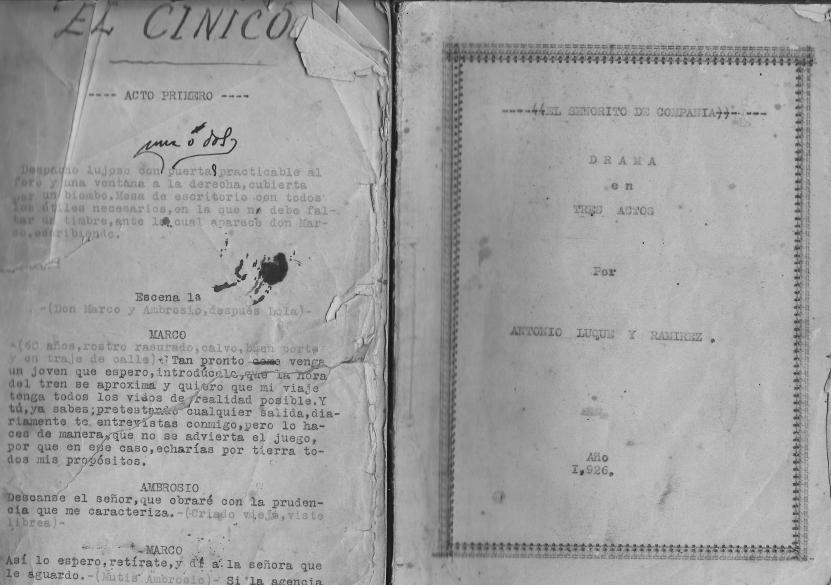 EL CINICO
---- ACTO PRIMERO ----
una ó dos
Despacho lujoso con puerta practicable al
foro y una ventana a la derecha, cubierta
por un biombo. Mesa de escritorio con todos
los útiles necesarios, en la que no debe fal-
tar un timbre, ante la cual aparece don Mar-
co, escribiendo.
Escena 1ª
-(Don Marco y Ambrosio, después Lola)-
MARCO
-(60 años, rostro rasurado, calvo, buen porte
y en traje de calle)- Tan pronto como venga
un joven que espero, introdúcele, que la hora
del tren se aproxima y quiero que mi viaje
tenga todos los visos de realidad posible. Y
tú, ya sabes; pretestando cualquier salida, dia-
riamente te entrevistas conmigo, pero lo ha-
ces de manera, que no se advierta el juego,
por que en ese caso, echarías por tierra to-
dos mis propósitos.
AMBROSIO
Descanse el señor, que obraré con la pruden-
cia que me caracteriza. -(Criado viejo, viste
librea)-
-MARCO
Así lo espero, retírate, y dí a la señora que
le aguardo. -(Mutis Ambrosio)- Si la agencia
----((EL SEÑORITO DE COMPAÑIA))-- ---
D R A M A
e n
TRES ACTOS
Por
ANTONIO LUQUE Y RAMIREZ .
Año
I,926.